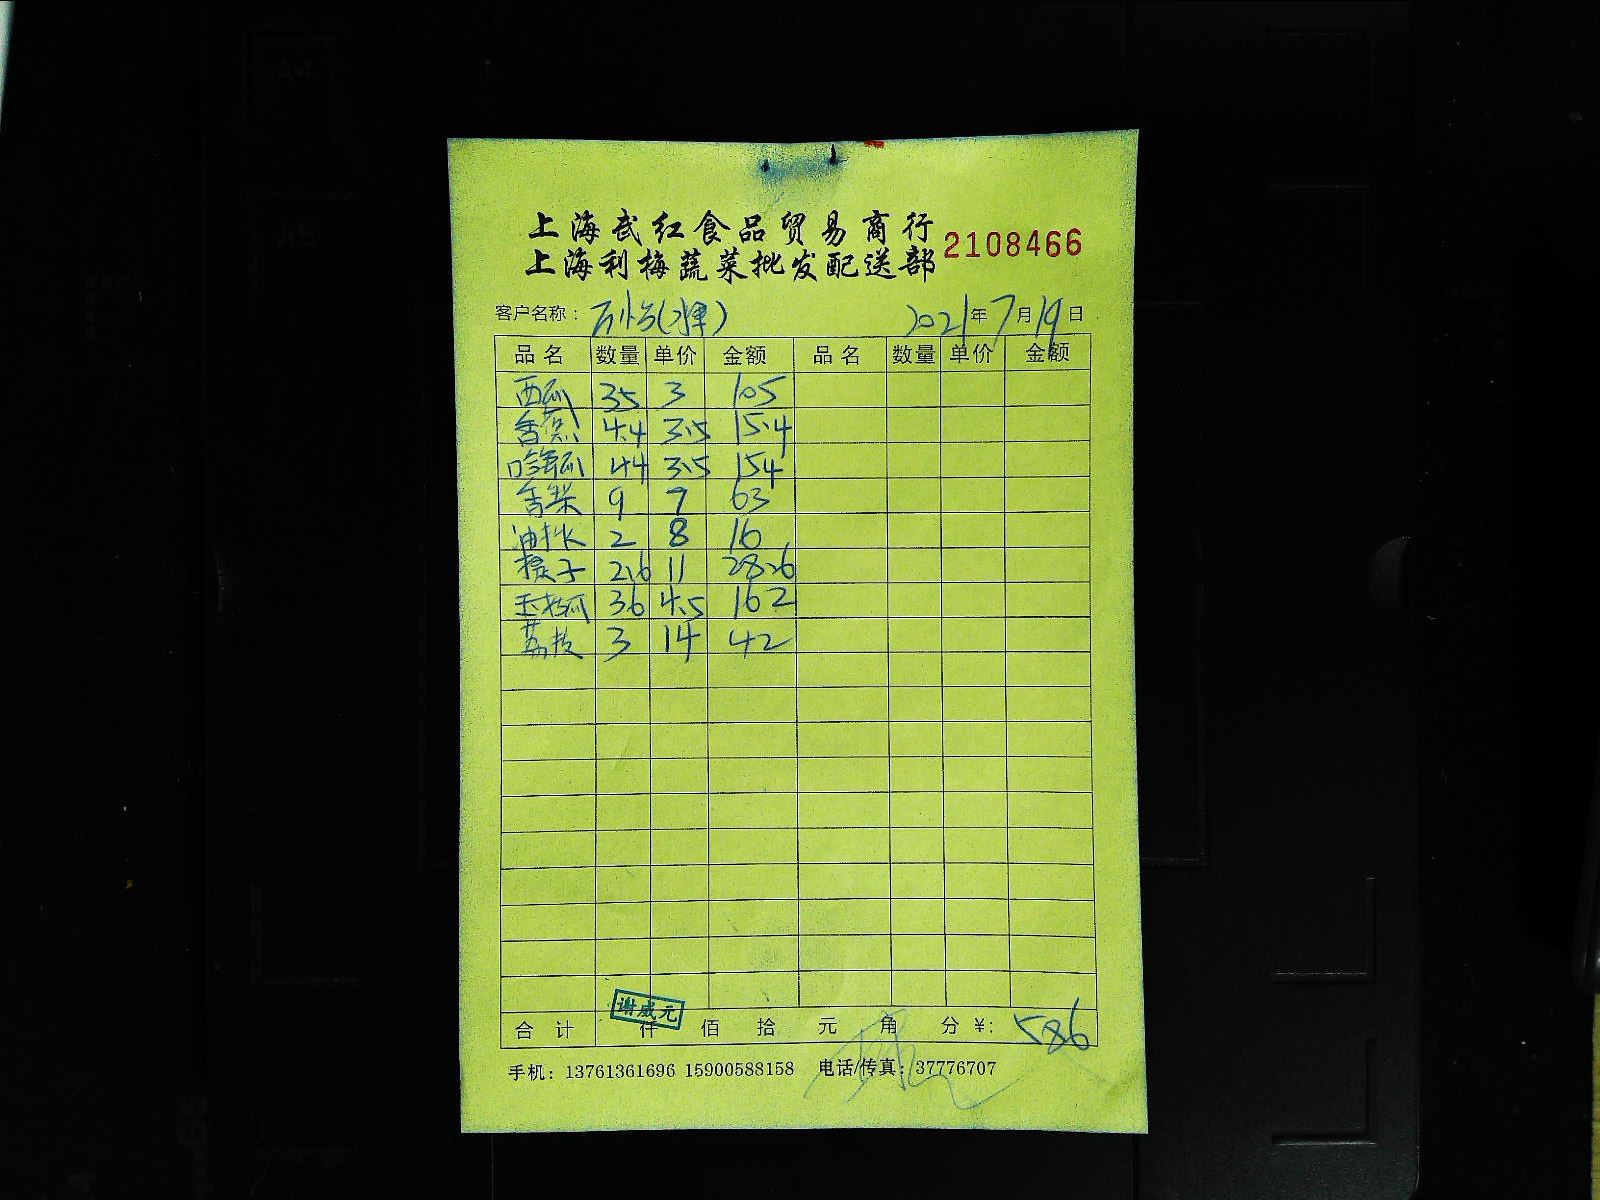 上海武红食品贸易商行
上海利梅蔬菜批发配送部
2108466
客户名称： 2021年7月19日
品名 数量 单价 金额 品名 数量 单价 金额
西瓜 35 3 105
香蕉 4.4 3.5 15.4
哈密瓜 44 3.5 154
香梨 9 7 63
油桃 2 8 16
提子 2.6 11 28.6
玉菇瓜 36 4.5 162
荔枝 3 14 42
谢威元
合计 仟 佰 拾 元 角 分 ¥: 586
手机：13761361696 15900588158 电话/传真：37776707